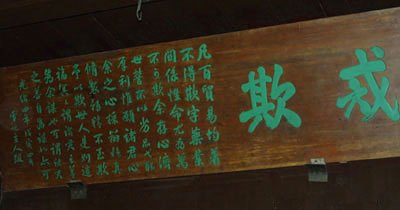 戒欺
凡百貿易均著
不得欺字藥業
關係性命尤為萬
不可欺余存心濟
世誓不以劣品弋取
厚利惟願諸君心
余之心採辦務真
修製務精不至欺
予以欺世人是則造
福冥冥謂諸君之善
為余謀也可謂諸君
之善自為謀也亦可